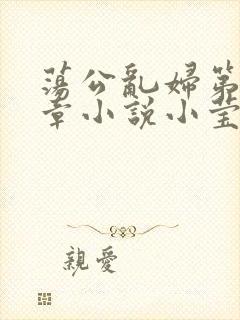 蕩公亂婦第
章小說小瑩
親愛